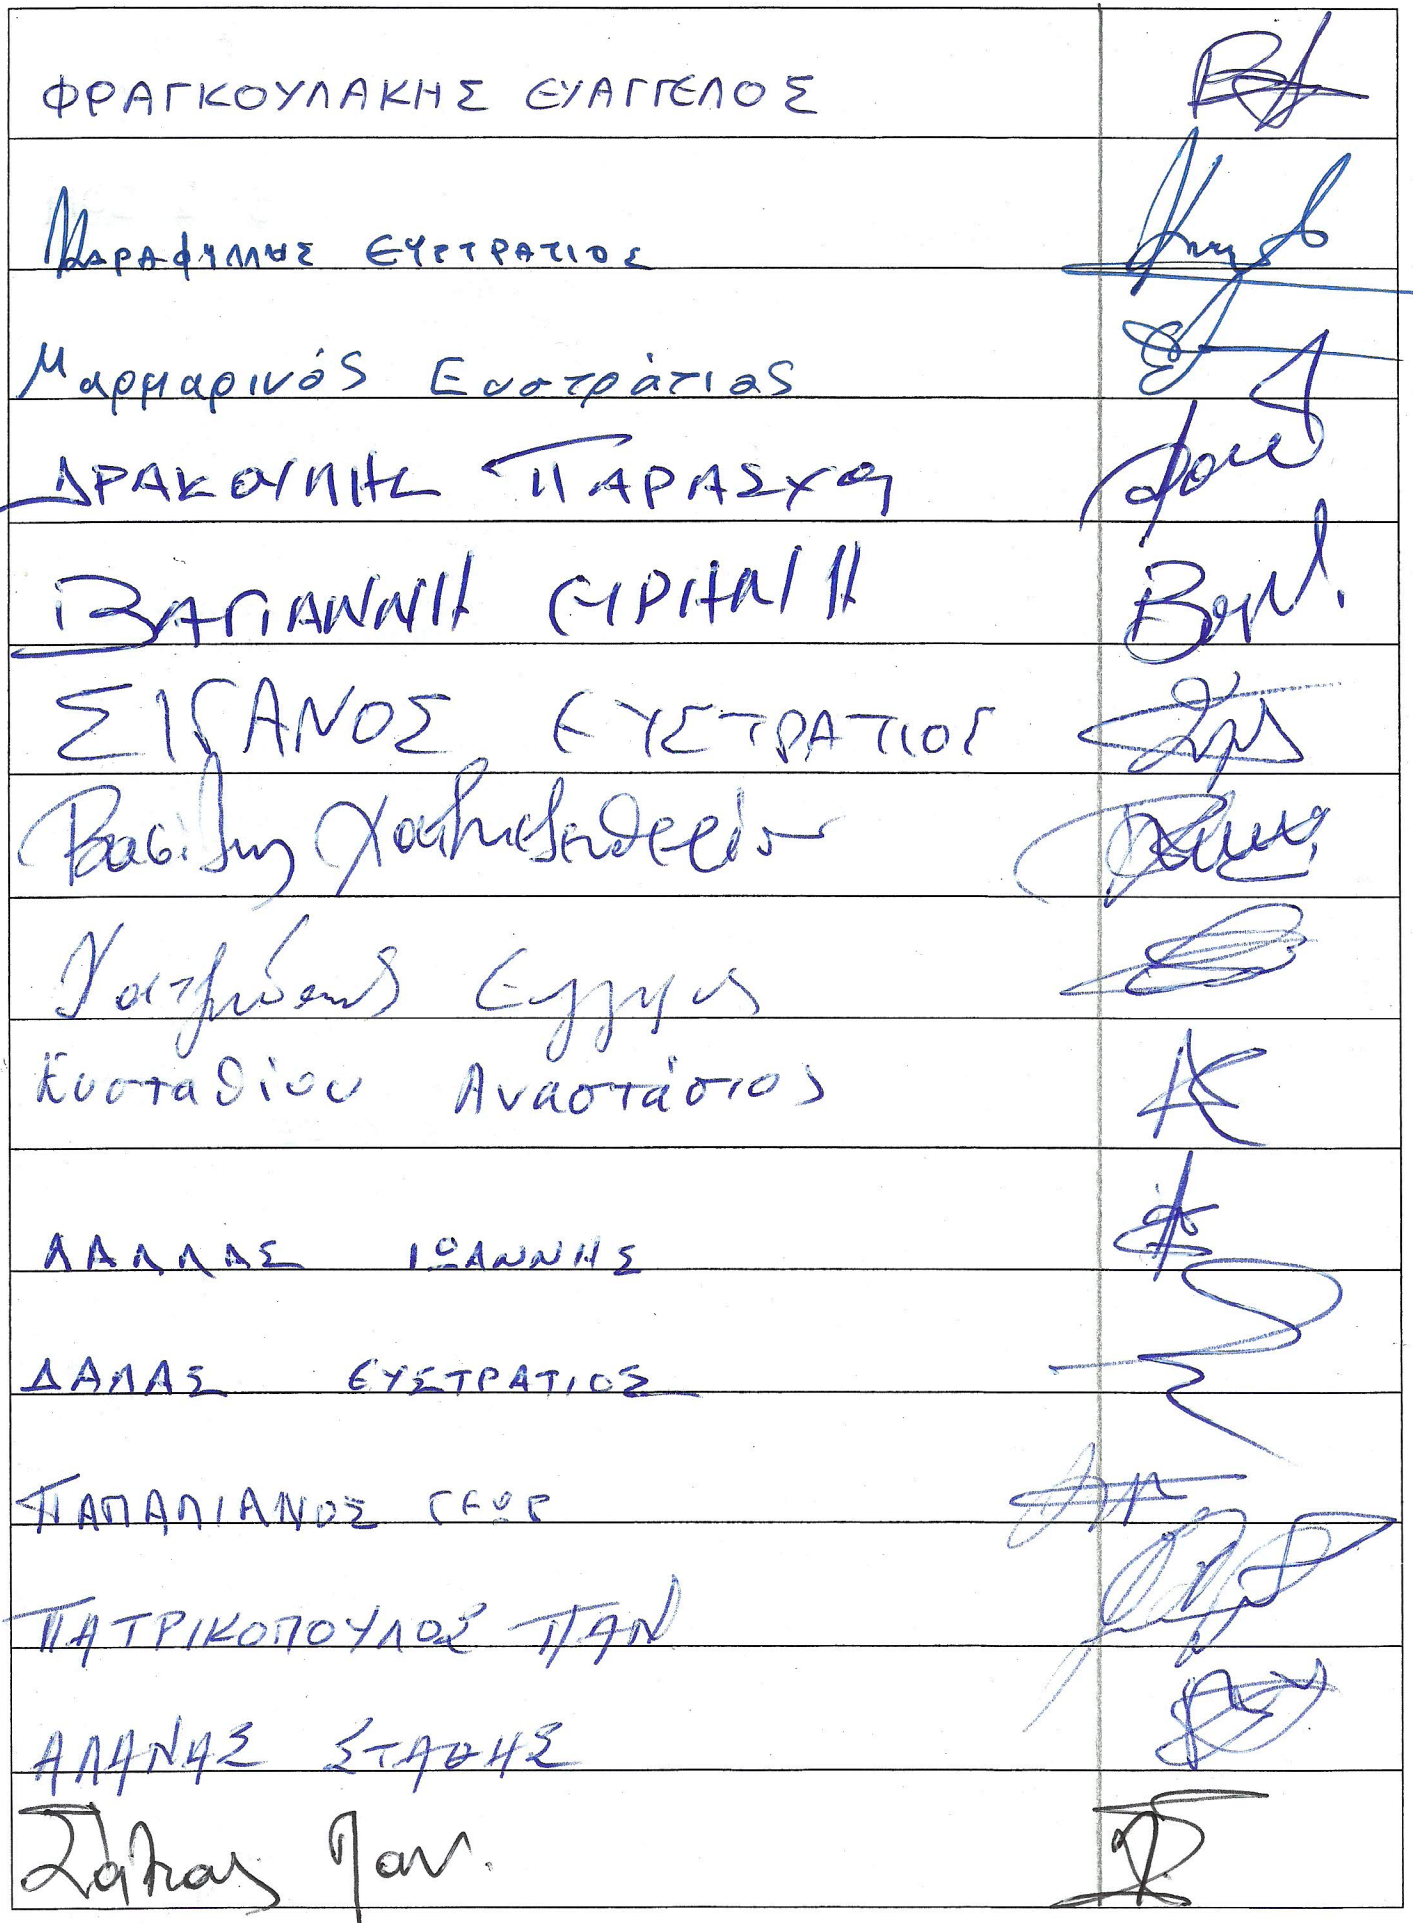 ΦΡΑΓΚΟΥΛΑΚΗΣ ΕΥΑΓΓΕΛΟΣ
ΚΑΡΑΦΥΛΛΗΣ ΕΥΣΤΡΑΤΙΟΣ
Μαρμαρινός Ευστράτιος
ΔΡΑΚΟΥΛΗΣ ΠΑΡΑΣΧΟΣ
ΒΑΓΙΑΝΝΗ ΕΙΡΗΝΗ
ΣΙΓΑΝΟΣ ΕΥΣΤΡΑΤΙΟΣ
Βασίλης
Ευσταθίου Αναστάσιος
ΛΑΛΛΑΣ ΙΩΑΝΝΗΣ
ΔΑΛΑΣ ΕΥΣΤΡΑΤΙΟΣ
ΠΑΠΑΛΙΑΝΟΣ ΓΕΩΡ
ΠΑΤΡΙΚΟΠΟΥΛΟΣ ΠΑΝ
ΑΛΑΝΑΣ ΣΤΑΘΗΣ
Παν.